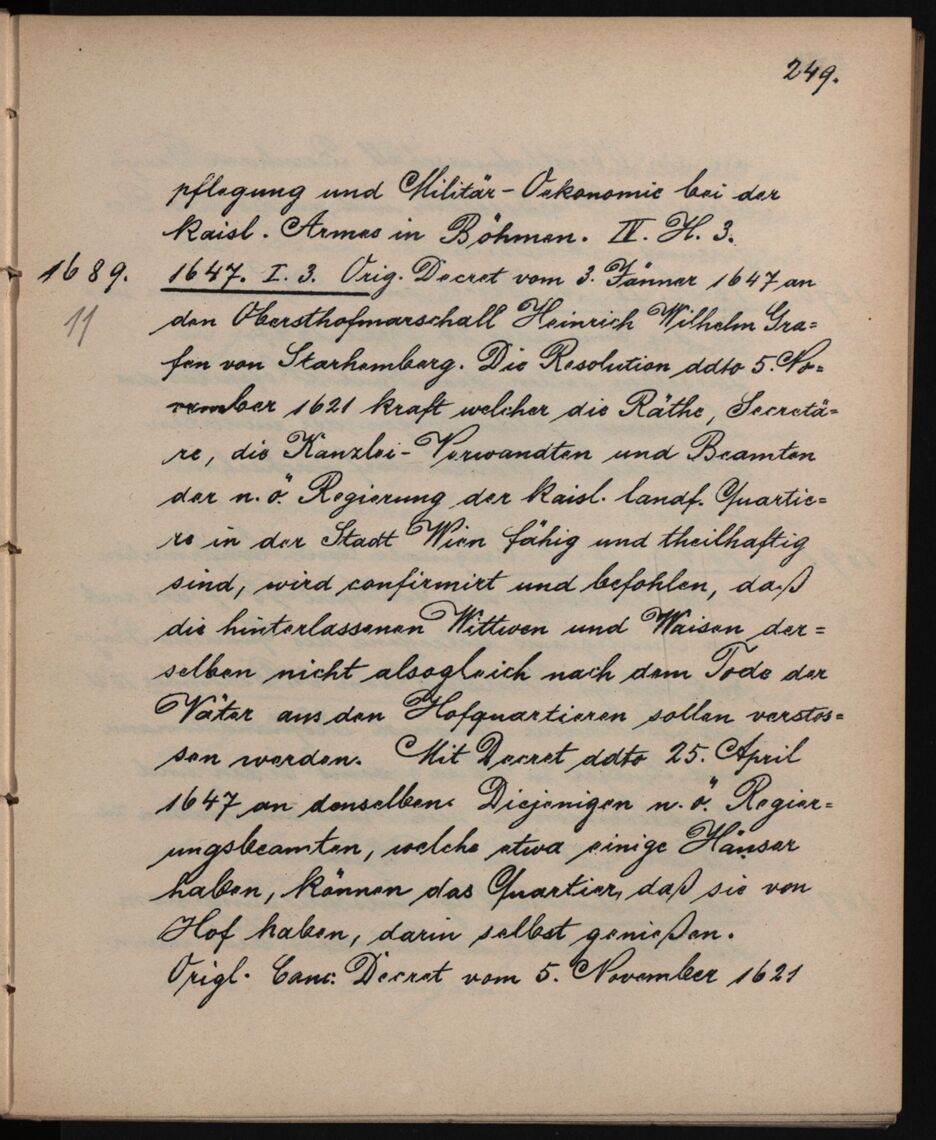 249.
pflegung und Militär-Oekonomie bei der
kaisl. Armee in Böhmen. IV. H. 3.
1689. 1647. I. 3. Orig. Decret vom 3. Jänner 1647 an
11 den Obersthofmarschall Heinrich Wilhelm Gra=
fen von Starhemberg. Die Resolution ddto 5. No=
vember 1621 kraft welcher die Räthe, Secretä=
re, die Kanzlei-Verwandten und Beamten
der n. ö. Regierung der kaisl. landf. Quartie=
re in der Stadt Wien fähig und theilhaftig
sind, wird confirmirt und befohlen, daß
die hinterlassenen Wittwen und Waisen der=
selben nicht alsogleich nach dem Tode der
Väter aus den Hofquartieren sollen verstos=
sen werden. Mit Decret ddto 25. April
1647 an denselben. Diejenigen n. ö. Regier=
ungsbeamten, welche etwa einige Häuser
haben, können das Quartier, daß sie von
Hof haben, darin selbst genießen.
Origl. Canc. Decret vom 5. November 1621